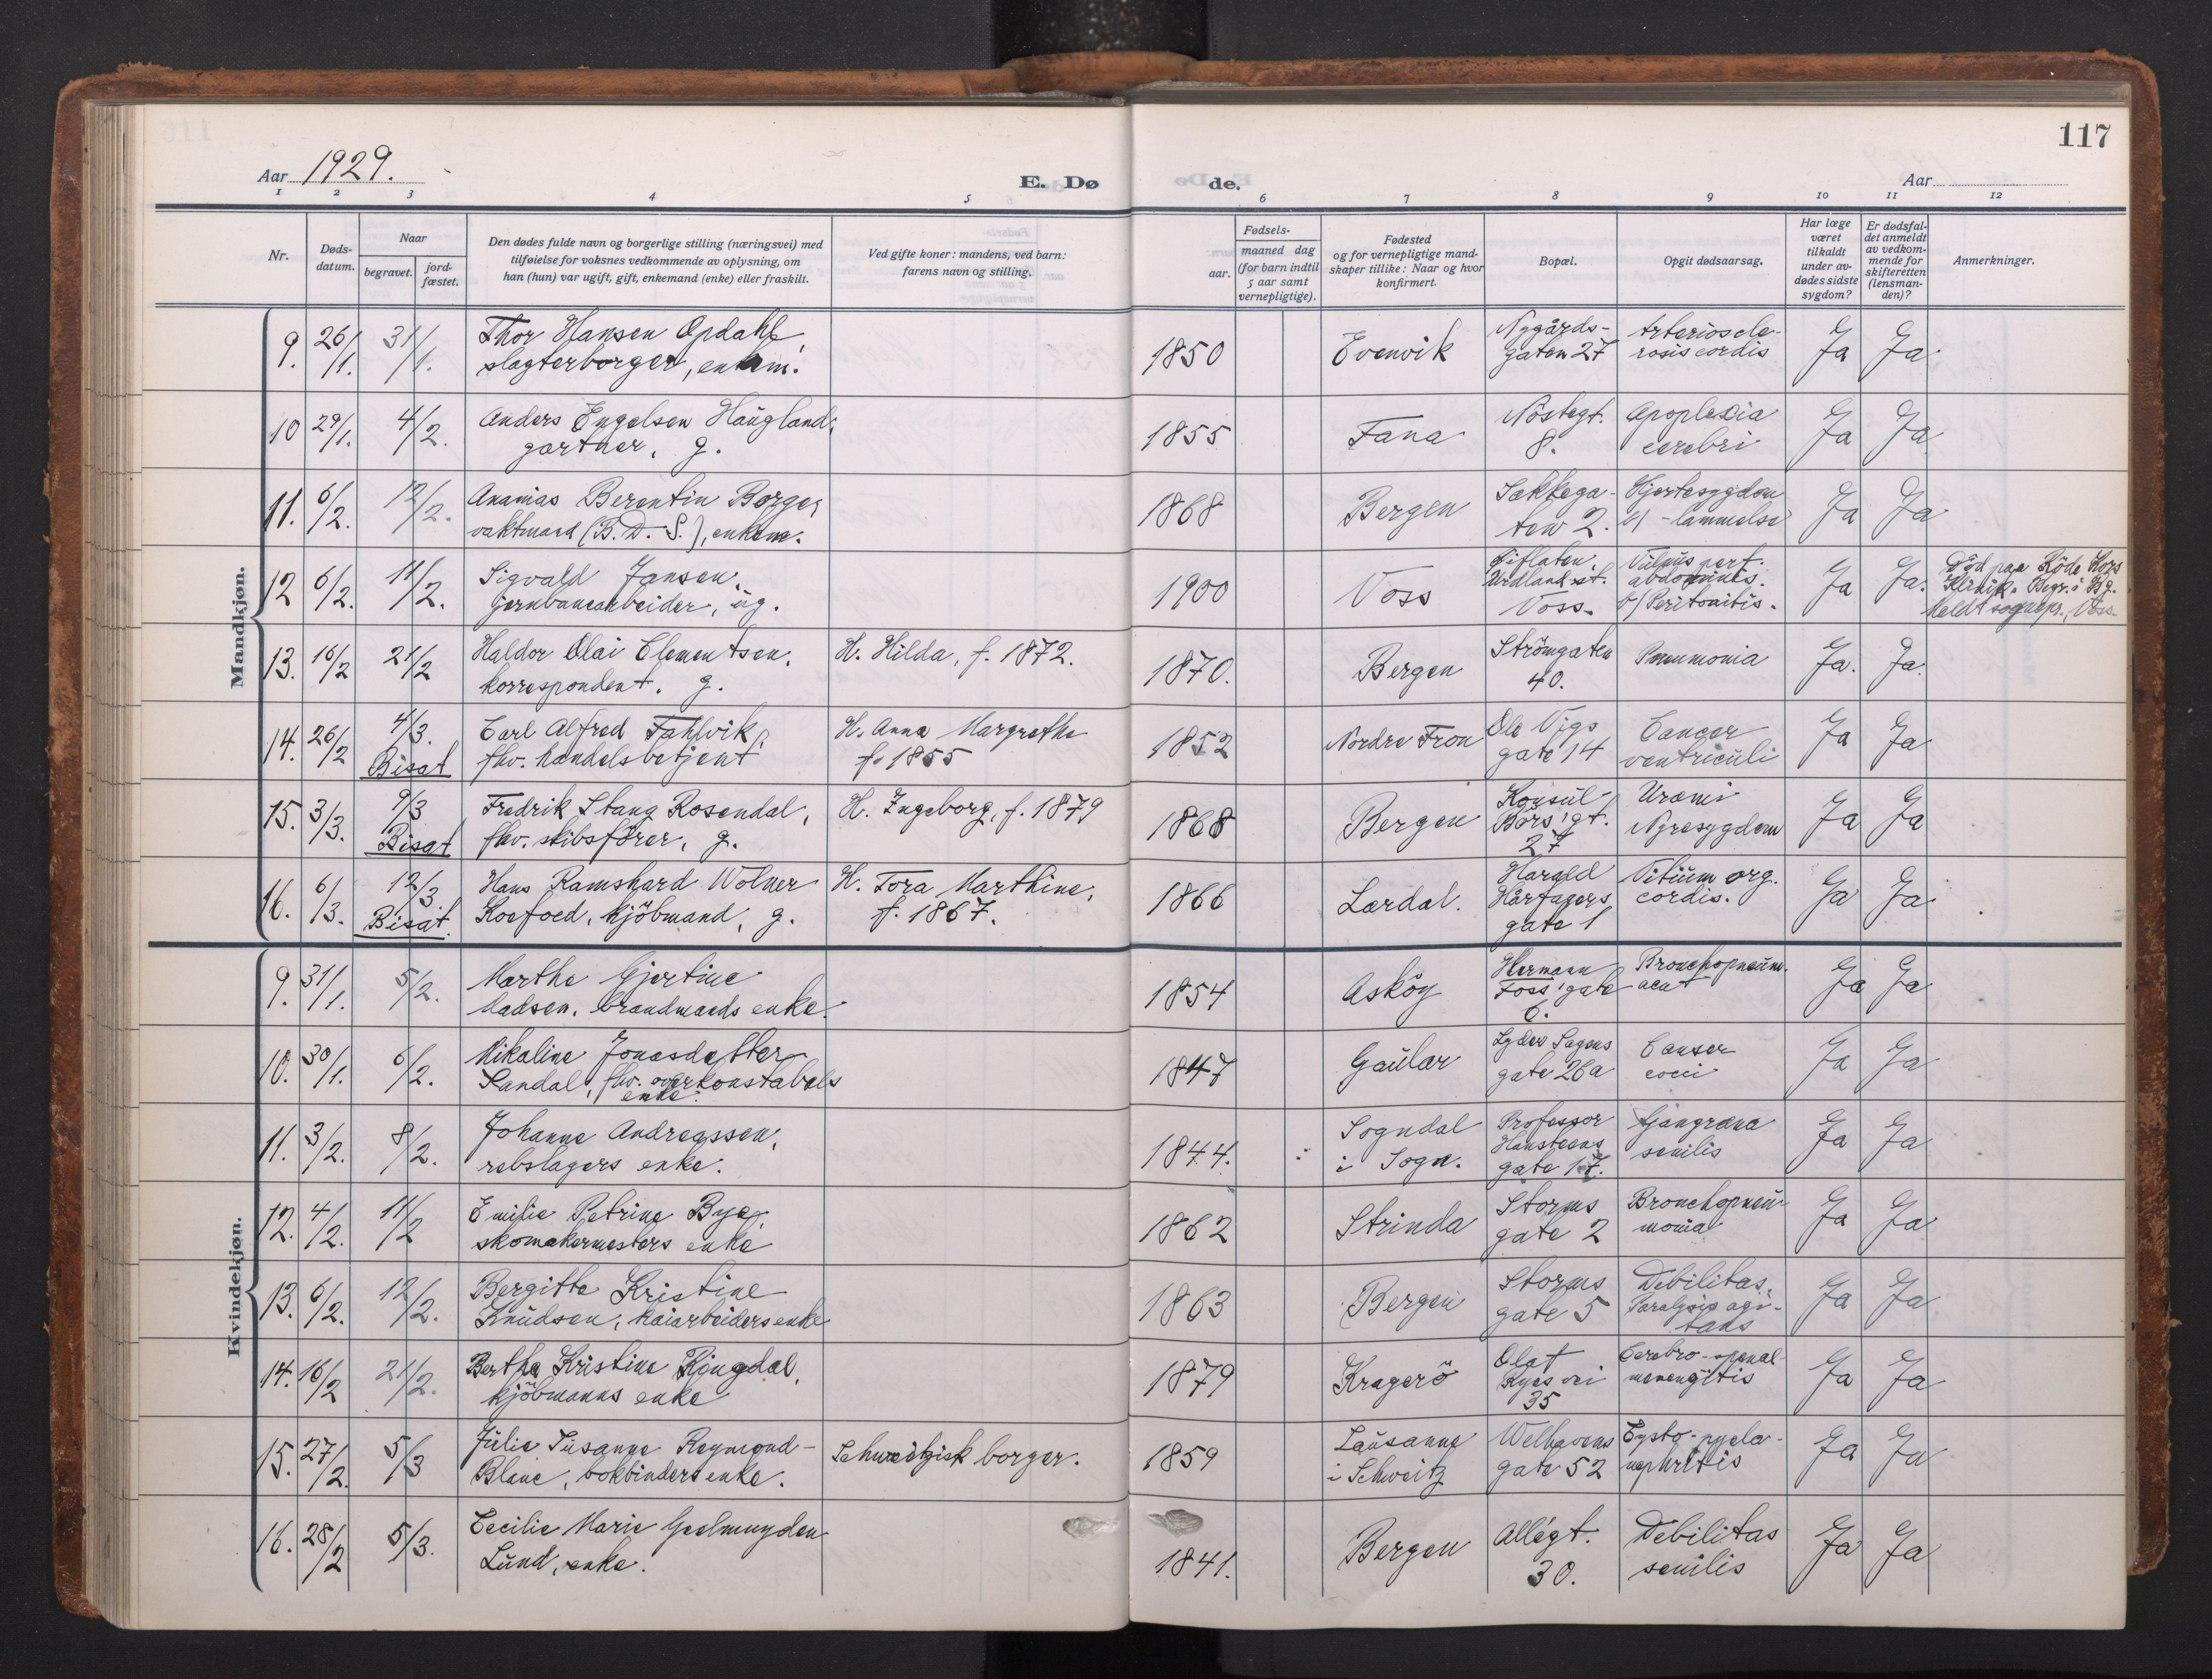 117
Aar 1929.
E. Døde.
Aar
1 2 3 4 5 6 7 8 9 10 11 12
Nr.
Døds-
datum.
Naar
begravet.
jord-
fæstet.
Den dødes fulde navn og borgerlige stilling (næringsvei) med
tilføielse for voksnes vedkommende av oplysning, om
han (hun) var ugift, gift, enkemand (enke) eller fraskilt.
Ved gifte koner: mandens, ved barn:
farens navn og stilling.
Fødsels-
aar.
maaned dag
(for barn indtil
5 aar samt
vernepligtige).
Fødested
og for vernepligtige mand-
skaper tillike: Naar og hvor
konfirmert.
Bopæl.
Opgit dødsaarsag.
Har læge
været
tilkaldt
under av-
dødes sidste
sygdom?
Er dødsfal-
det anmeldt
av vedkom-
mende for
skifteretten
(lensman-
den)?
Anmerkninger.
Mandkjøn.
9. 26/1. 31/1. Thor Hansen Opdahl,
slagterborger, enkem.
1850 Evenvik
Nygårds-
gaten 27
Arterioscle-
rosis cordis
Ja Ja
10 29/1. 4/2. Anders Engelsen Haugland,
gartner, g.
1855 Fana
Nöstegt.
8.
Apoplexia
cerebri
Ja Ja
11. 6/2. 12/2. Ananias Berentin Borge,
vaktmand (B. D. S.), enkem.
1868 Bergen
Sækkega-
ten 2.
Hjertesygdom
b/ -lammelse
Ja Ja
12 6/2. 11/2. Sigvald Jansen,
jernbanearbeider, ug.
1900 Voss
Urdland st.
Voss.
Vulnus perf.
abdominis.
b/ Peritonitis.
Ja Ja.
Död paa Röde Kors
Klinik. Begr. i Bg.
Meldt sognepr., Voss.
13. 16/2 21/2 Haldor Olai Clementsen,
korrespondent. g.
H. Hilda, f. 1872.
1870. Bergen
Strömgaten
40.
Pneumonia
Ja. Ja.
14. 26/2 4/3. Bisat Carl Alfred Fahlvik,
fhv. handelsbetjent
H. Anna Margrethe
f. 1855
1852 Nordre Fron
Ole Vigs
gate 14
Cancer
ventriculi
Ja Ja
15. 3/3. 9/3 Bisat Fredrik Stang Rosendal,
fhv. skibsförer, g.
H. Ingeborg, f. 1879
1868 Bergen
Konsul
Börs' gt.
27
Uræmi
Nyresygdom
Ja Ja
16. 6/3. 12/3 Bisat. Hans Ramshard Wolner
Koefoed, kjöbmand, g.
H. Tora Marthine,
f. 1867.
1866 Lærdal.
Harald
Hårfagers
gate 1
Vitium org.
cordis.
Ja Ja
Kvindekjøn.
9. 31/1. 5/2. Marthe Gjertine
Madsen, brandmands enke.
1854 Asköy
Hermann
Foss' gate
6.
Bronchopneum.
acut
Ja Ja
10. 30/1. 6/2. Mikaline Jonasdatter
Sandal, fhv. overkonstabels
enke.
1847 Gaular
Lyder Sagens
gate 26a
Canser
coeci
Ja Ja
11. 3/2. 8/2. Johanne Andreassen,
rebslagers enke.
1844. Sogndal
i Sogn.
Professor
Hansteens
gate 17.
Gjangræna
senilis
Ja Ja
12. 4/2. 11/2 Emilie Petrine Bye,
skomakermesters enke
1862 Strinda
Storms
gate 2
Bronchopneu-
monia
Ja Ja
13. 6/2. 12/2. Bergitte Kristine
Knudsen, kaiarbeiders enke
1863 Bergen
Storms
gate 5
Debilitas,
Paralysis agi-
tans
Ja Ja
14. 16/2 21/2. Bertha Kristine Ringdal,
kjöbmanns enke
1879 Kragerö
Olaf
Ryes vei
35
Cerebro-spinal-
meningitis
Ja Ja
15. 27/2. 5/3 Julie Susanne Reymond-
Blanc, bokbinders enke.
Schweitzisk borger.
1859 Lausanne
i Schweitz
Welhavens
gate 52
Cysto-pyelo-
nephritis
Ja Ja
16. 28/2 5/3. Cecilie Marie Geelmuyden
Lund, enke.
1841. Bergen
Allégt.
30.
Debilitas
senilis
Ja Ja